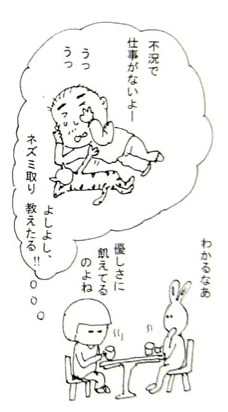 不況で
仕事がないよー
うっ
うっ
よしよし、
ネズミ取り
教えたる!!
わかるなあ
優しさに
飢えてる
のよね